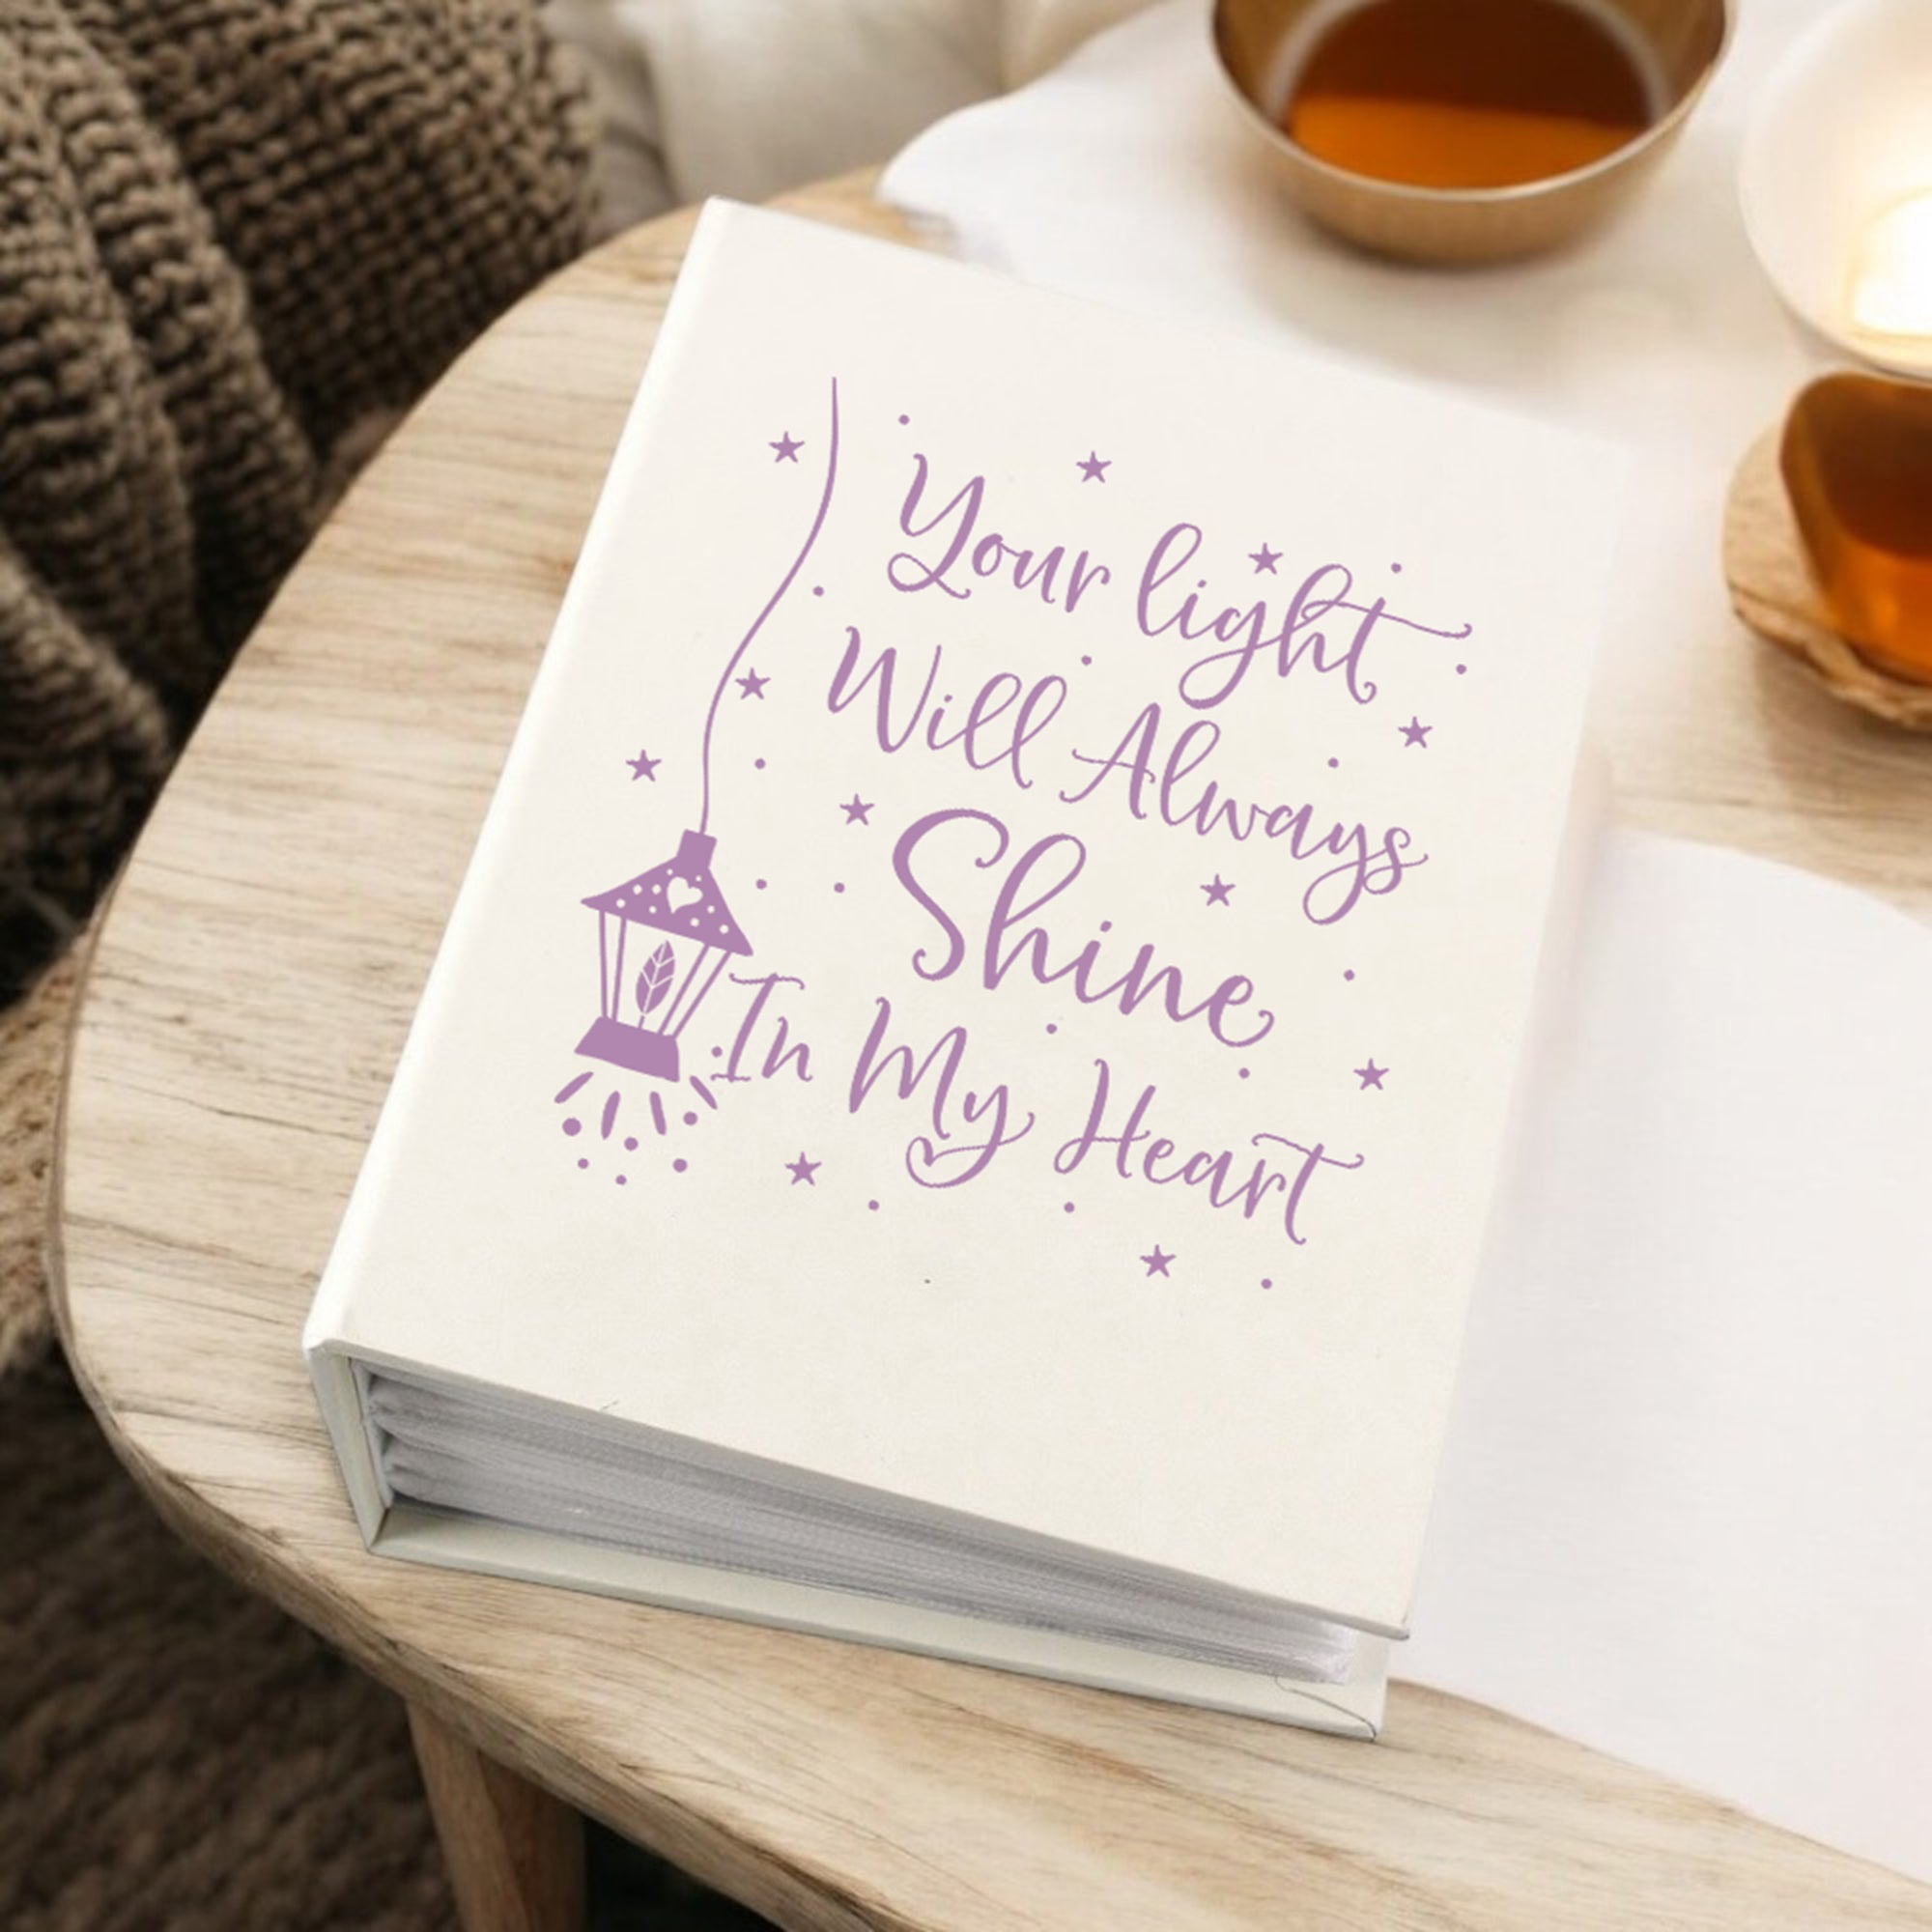 Your light
Will Always
Shine
In My Heart